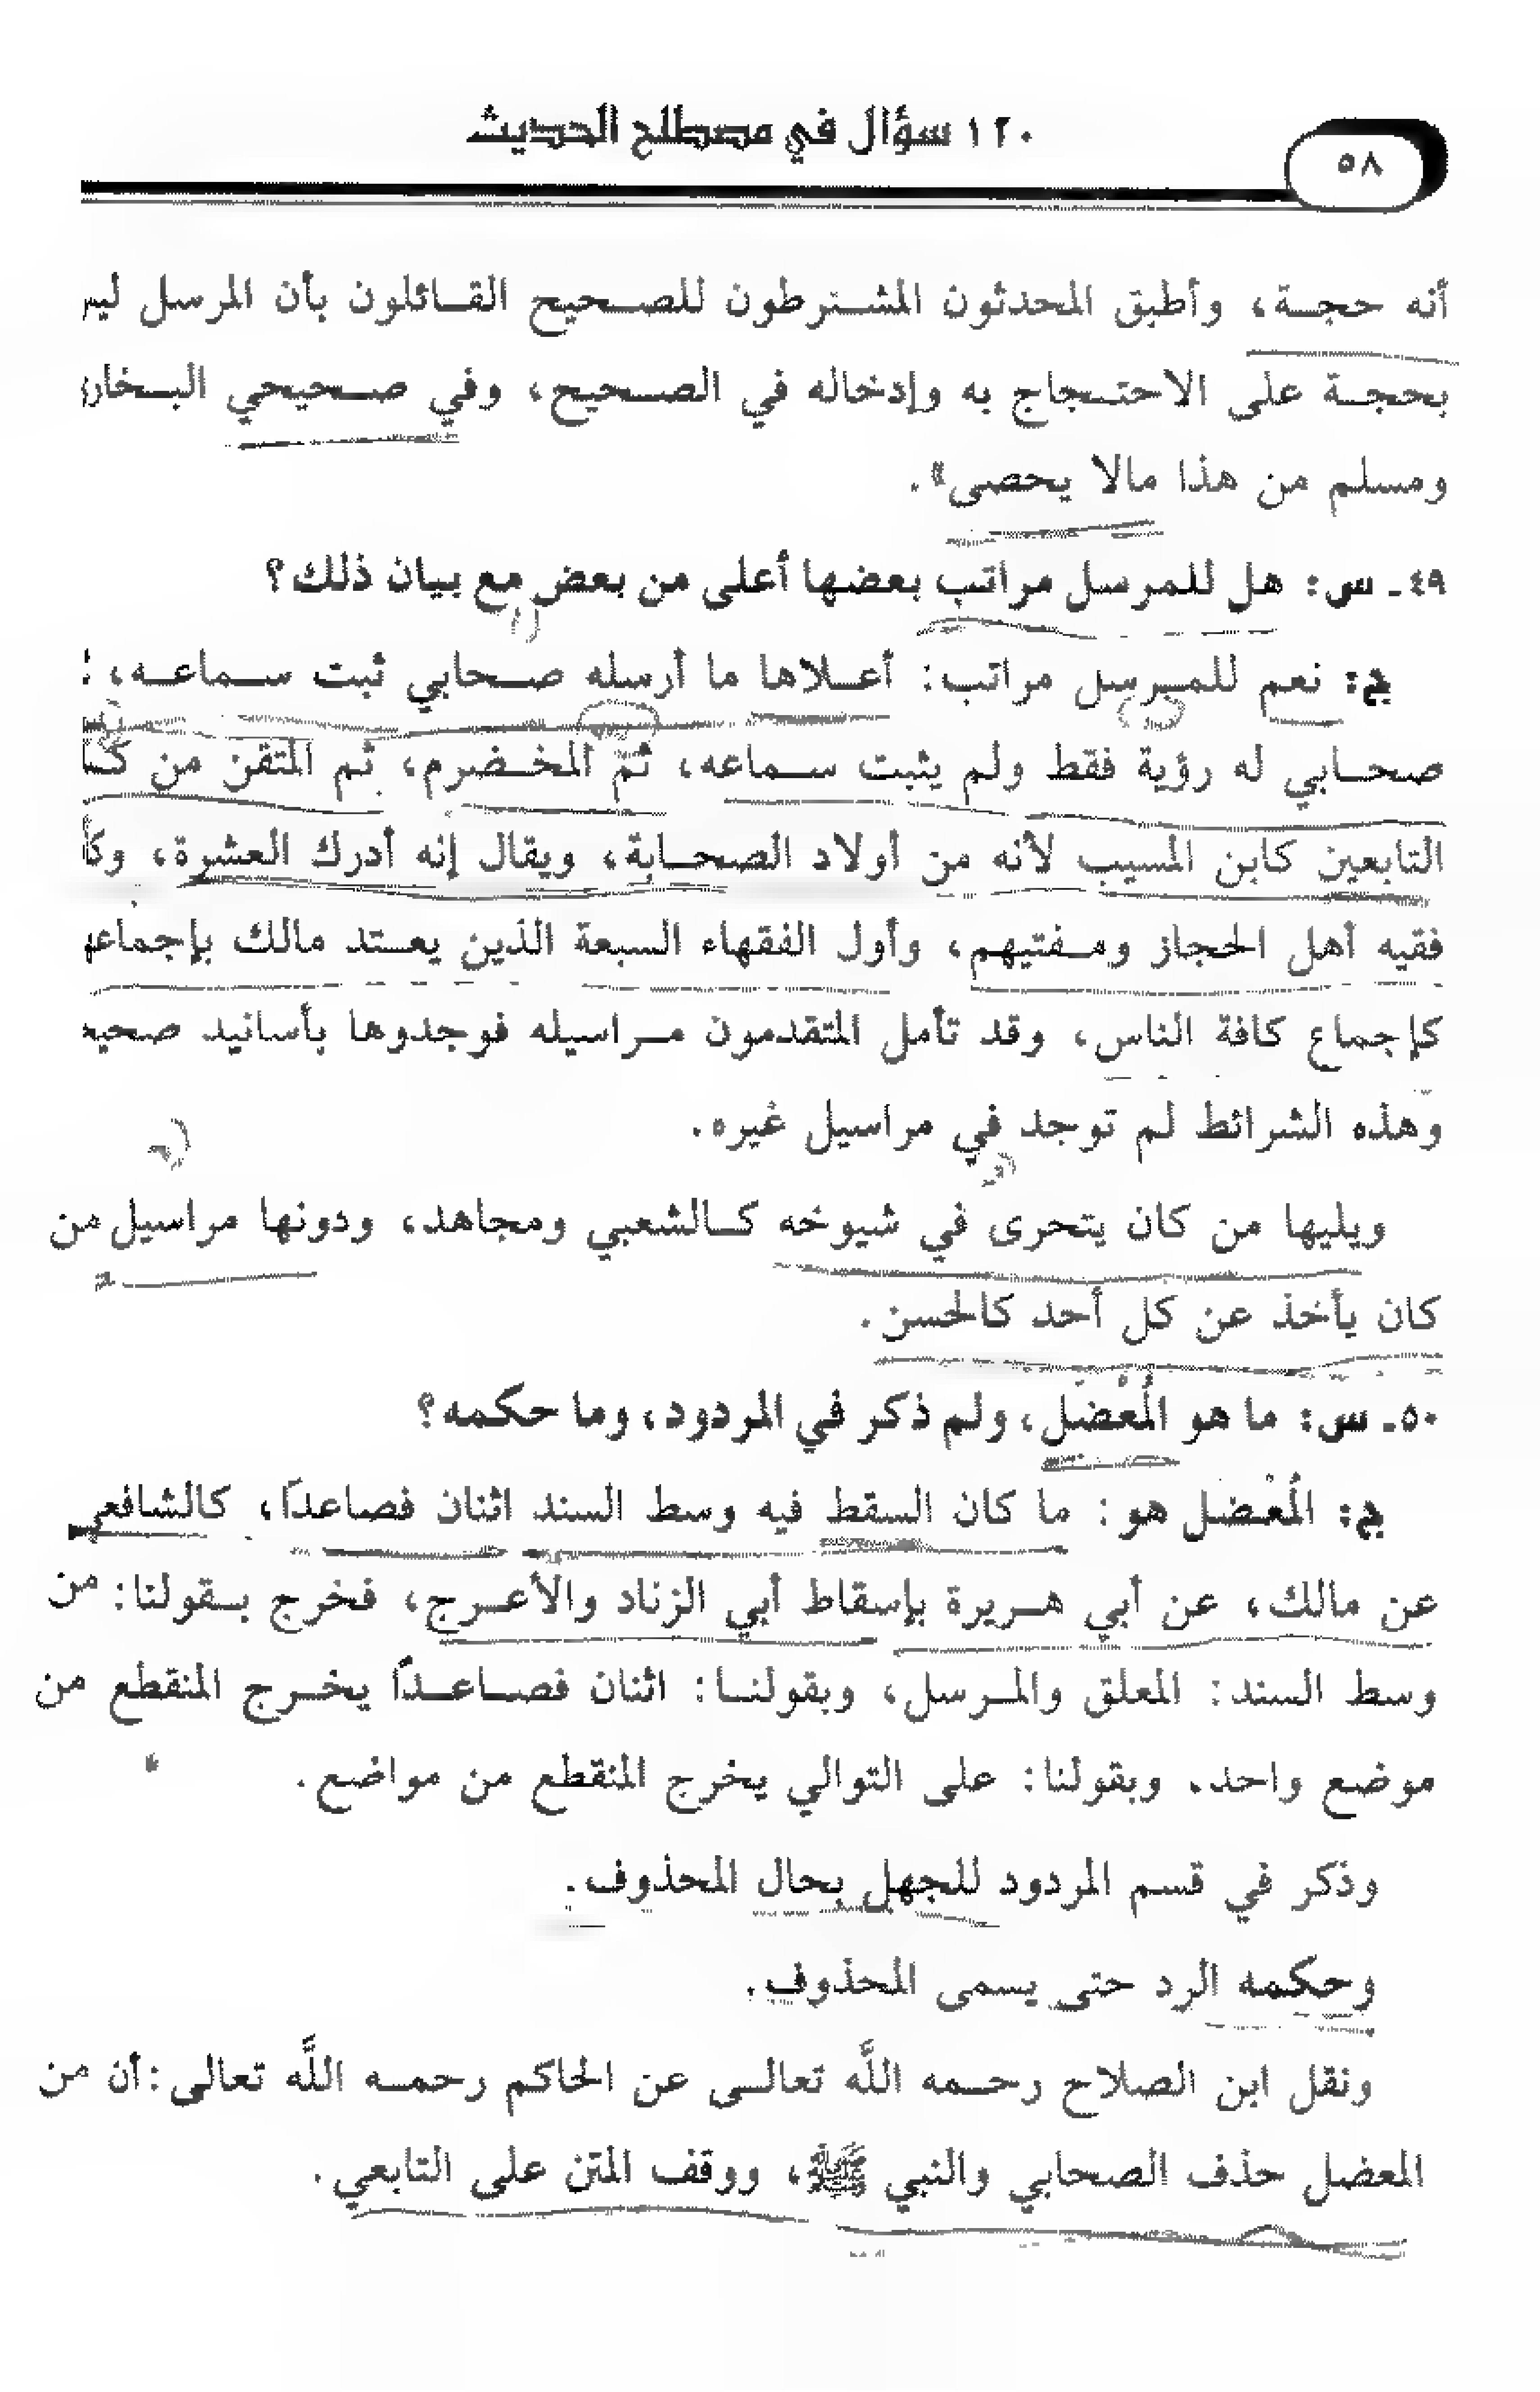 ١٢٠ سؤال في مصطلح الحديث
٥٨
أنه حجة، وأطبق المحدثون المشترطون للصحيح القائلون بأن المرسل
بحجة على الاحتجاج به وإدخاله في الصحيح، وفي صحيحي
ومسلم من هذا مالا يحصى».
٤٩ـ س: هل للمرسل مراتب بعضها أعلى من بعض مع بيان ذلك؟
ج: نعم للمرسل مراتب: أعلاها ما أرسله صحابي ثبت سماعه،
صحابي له رؤية فقط ولم يثبت سماعه، ثمّ المخضرم، ثم المتقن من
التابعين كابن المسيب لأنه من أولاد الصحابة، ويقال إنه أدرك العشرة،
فقيه أهل الحجاز ومفتيهم، وأول الفقهاء السبعة الذين يعتد مالك
كإجماع كافة الناس، وقد تأمل المتقدمون مراسيله فوجدوها بأسانيد
وهذه الشرائط لم توجد في مراسيل غيره.
ويليها من كان يتحرى في شيوخه كالشعبي ومجاهد، ودونها مراسيل من
كان يأخذ عن كل أحد كالحسن.
٥٠ـ س: ما هو المُعْضَل، ولم ذكر في المردود، وما حكمه؟
ج: المُعْضل هو: ما كان السقط فيه وسط السند اثنان فصاعدًا، كالشافعي
عن مالك، عن أبي هريرة بإسقاط أبي الزناد والأعرج، فخرج بقولنا: من
وسط السند: المعلق والمرسل، وبقولنا: اثنان فصاعدًا يخرج المنقطع من
موضع واحد. وبقولنا: على التوالي يخرج المنقطع من مواضع.
وذكر في قسم المردود للجهل بحال المحذوف.
وحكمه الرد حتى يسمى المحذوف.
ونقل ابن الصلاح رحمه اللَّه تعالى عن الحاكم رحمه اللَّه تعالى: أن من
المعضل حذف الصحابي والنبي ﷺ، ووقف المتن على التابعي.